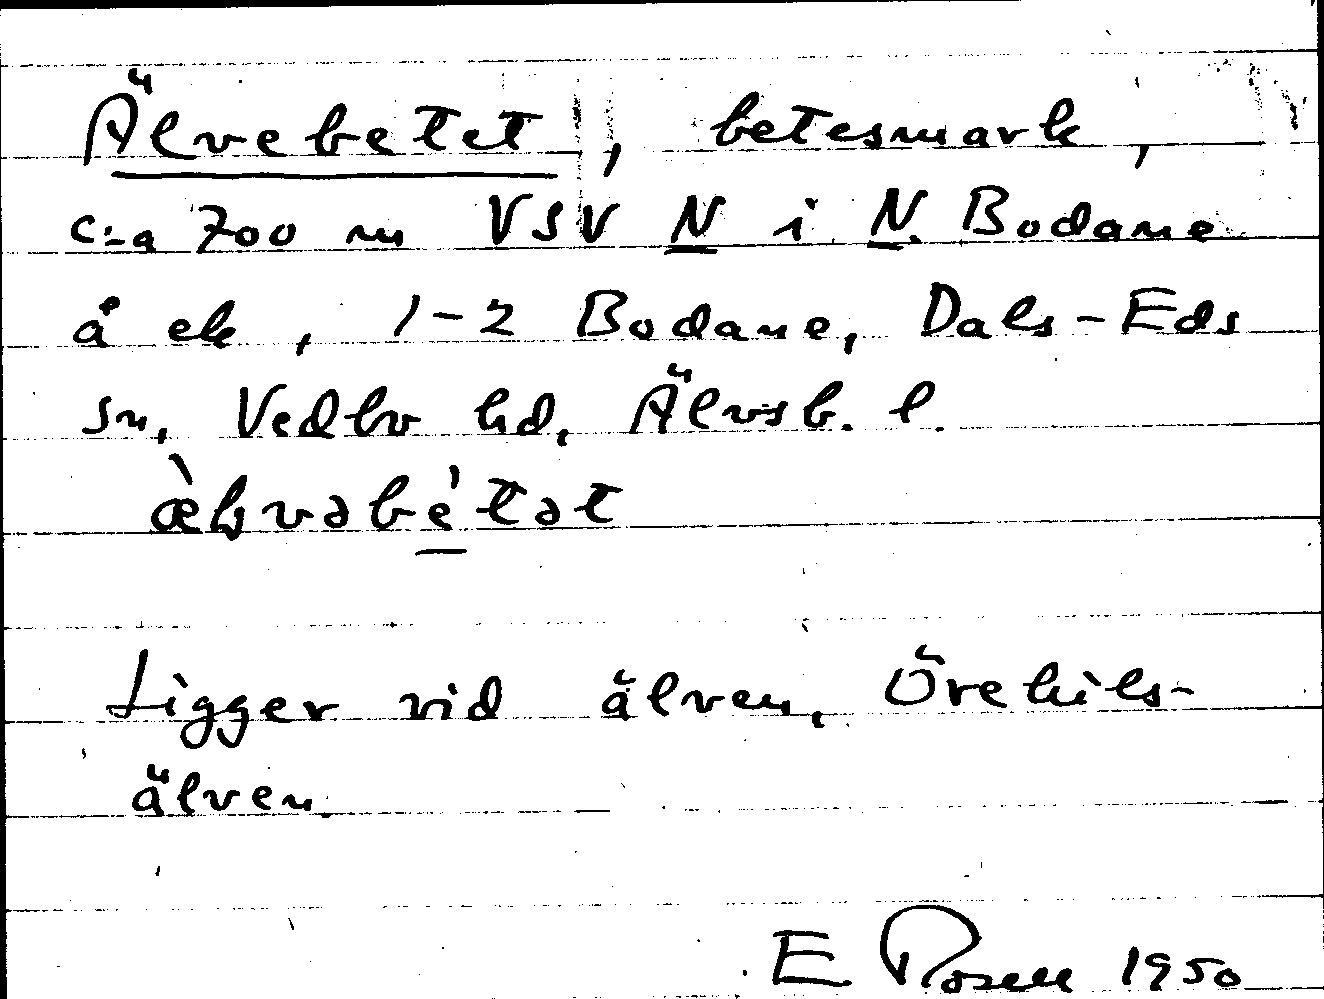 Älvebetet, betesmark,
c:a 700 m VSV N i N. Bodane
å ek, 1-2 Bodane, Dals-Eds
sn, Vedbo hd, Älvsb. l.
Ligger vid älven, Örekils-
älven
E Rosell 1950